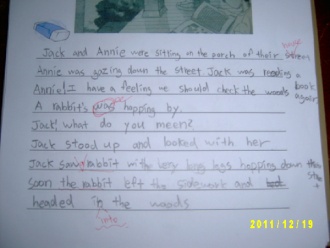 Jack and Annie were sitting on the porch of their house
Annie was gazing down the street Jack was reading a book
Annie! I have a feeling we should check the woods again.
A rabbit's was hopping by.
Jack! What do you meen?
Jack stood up and looked with her
Jack saw rabbit with very long legs hopping down the
soon the rabbit left the and
headed in the woods
into
2011/12/19